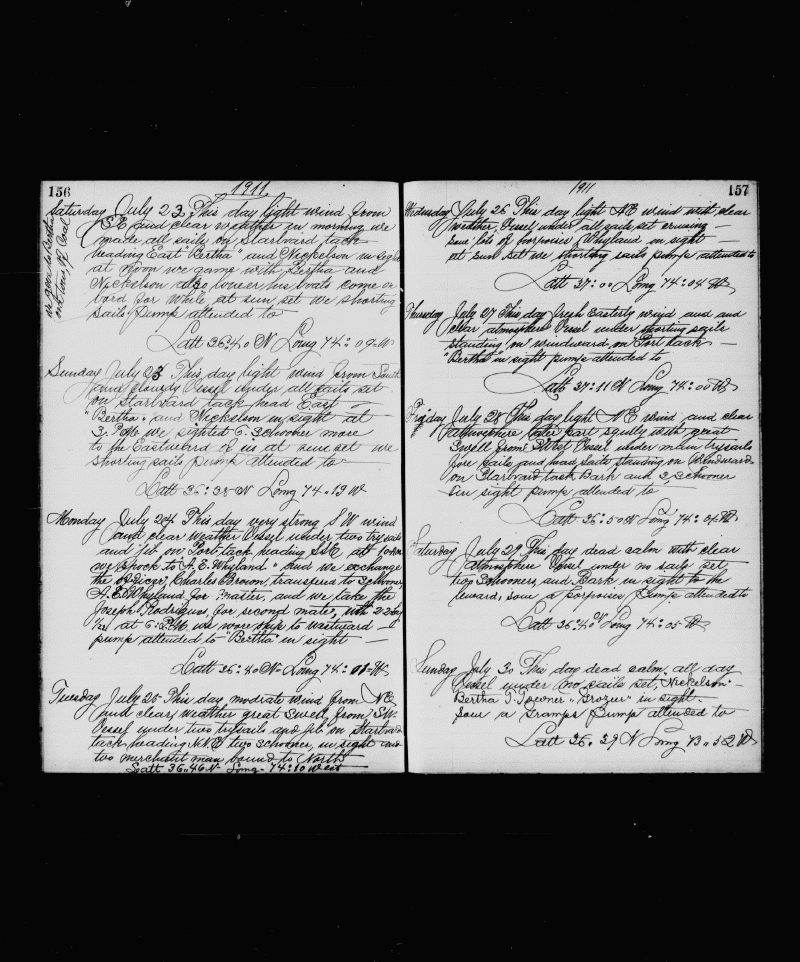 156
1911
Saturday July 23 This day light wind from
SE and clear weather in morning we
made all sails on Starboard tack
heading East "Bertha" and Nickelson in sight
at Noon we gam with Bertha and
Nickelson also lower his boats come on
bord for while at sun set we shorting
sails Pump attended to
we gave to Bertha
tons of Coal
Latt 36:40 N Long 74:09 W
Sunday July 23 This day light wind from South
and cloudy Vessel under all sails set
on Starboard tack head East
"Bertha" and Nickelson in sight at
3. P.M. we sighted 6. Schooner more
to the Eastward of us at sun set we
shorting sails pump attended to
Latt 36:38 N Long 74..19 W
Monday July 24 This day very strong SW wind
and clear weather Vessel under two try sails
and jib on Port tack heading SSE at
we spock to "A. E. Whyland" and we exchange
the officer, Charles Brown, transfered to Schooner
A. E. Whyland for master, and we take the
Joseph Rodrigues, for second mate, with
at 6: P.M. we wore ship to wastward
pump attended to "Bertha" in sight
Latt 36:40 N Long 74: W
Tuesday July 25 This day modrate wind from NE
and clear, weather great Swell from SW.
Vessel under two trysails and jib on Starboard
tack heading NNE two schooner, in sight and
two merchant man bound to North
Latt 36..46 N Long 74:10 West
1911
157
Wednesday July 26 This day light NE wind with clear
weather, Vessel under all sails set cruing
saw lots of porpoises Whyland in sight
at sun set we shorting sails pump attended to
Latt 37:00 Long 74:04 W
Thursday July 27 This day fresh Easterly wind and and
clear atmosphere Vessel under shorting sails
standing on windward, on Port tack
"Bertha" in sight pump attended to
Latt 37:11 N Long 74:00 W
Friday July 28 This day light NE wind and clear
atmosphere later part sqully with great
Swell from Vessel under main trysails
fore sails and head sails standing on Windward
on Starboard tack Bark and 3, Schooner
in sight pump attended to
Latt 36:50 N Long 74:04 W
Saturday July 29 This day dead calm with clear
atmosphere Vessel under no sails set
two Schooners, and Bark in sight to the
leward, saw a porpoises Pump attended to
Latt 36:40 N Long 74:05 W
Sunday July 30 This day dead calm, all day
Vessel under no sails set, Nickelson
Bertha J. Towner "Grozer" in sight
saw a Gramps Pump attended to
Latt 36..39 N Long 73..52 W